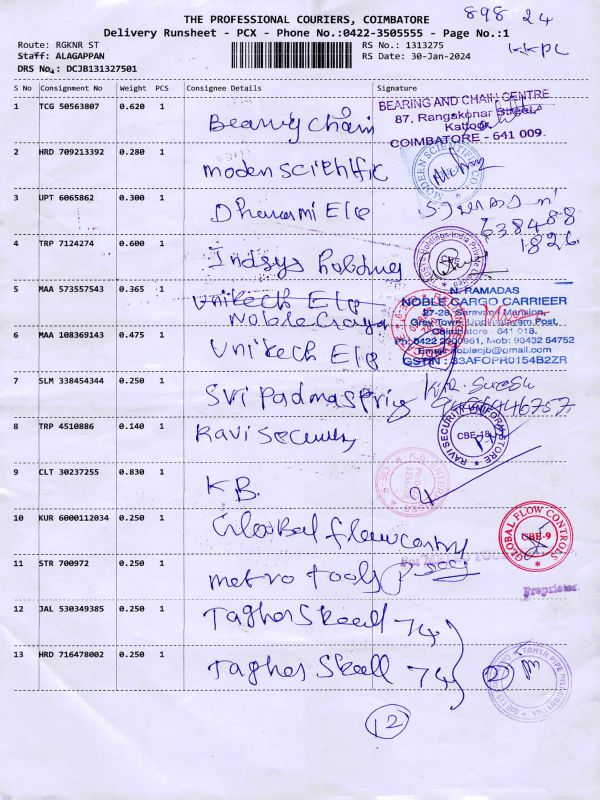 THE PROFESSIONAL COURIERS, COIMBATORE
898 24
Delivery Runsheet - PCX - Phone No.:0422-3505555 - Page No.:1
KKPL
Route: RGKNR ST
RS No.: 1313275
Staff: ALAGAPPAN
RS Date: 30-Jan-2024
DRS No.: DCJB131327501
S No Consignment No Weight PCS Consignee Details Signature
1 TCG 50563807 0.620 1 Bearing Chain
BEARING AND CHAIN CENTRE
87, Rangakonar Street
Kattoor
COIMBATORE - 641 009.
2 HRD 709213392 0.280 1 Moden Scientific
MODERN SCIENTIFIC CO
3 UPT 6065862 0.300 1 Dhanami Ele
63848 88
1826
4 TRP 7124274 0.600 1 Indsys holdings
Holdings India Private
CBE
5 MAA 573557543 0.365 1 Unitech Ele
Noble Cargo
N. RAMADAS
NOBLE CARGO CARRIEER
27-28, Saravana Mansion,
Grey Town, Uppilipalayam Post,
Coimbatore - 641 018.
Email:noblecjb@gmail.com
GSTIN : 33AFOPR0154B2ZR
6 MAA 108369143 0.475 1 Unitech Ele
7 SLM 338454344 0.250 1 Sri Padmaspriy
8 TRP 4510886 0.140 1 Ravi Security
RAVI SECURITY UNIFORM STORE
CBE-18
9 CLT 30237255 0.830 1 K.B.
K.B.
CBE-9
10 KUR 6000112034 0.250 1 Global flow contry
GLOBAL FLOW CONTROLS
CBE-9
11 STR 700972 0.250 1 metro tools
Proprietor
12 JAL 530349385 0.250 1 Tagher Skall 74
13 HRD 716478002 0.250 1 Tagher Skall 74
2
TAHER PIPE
12